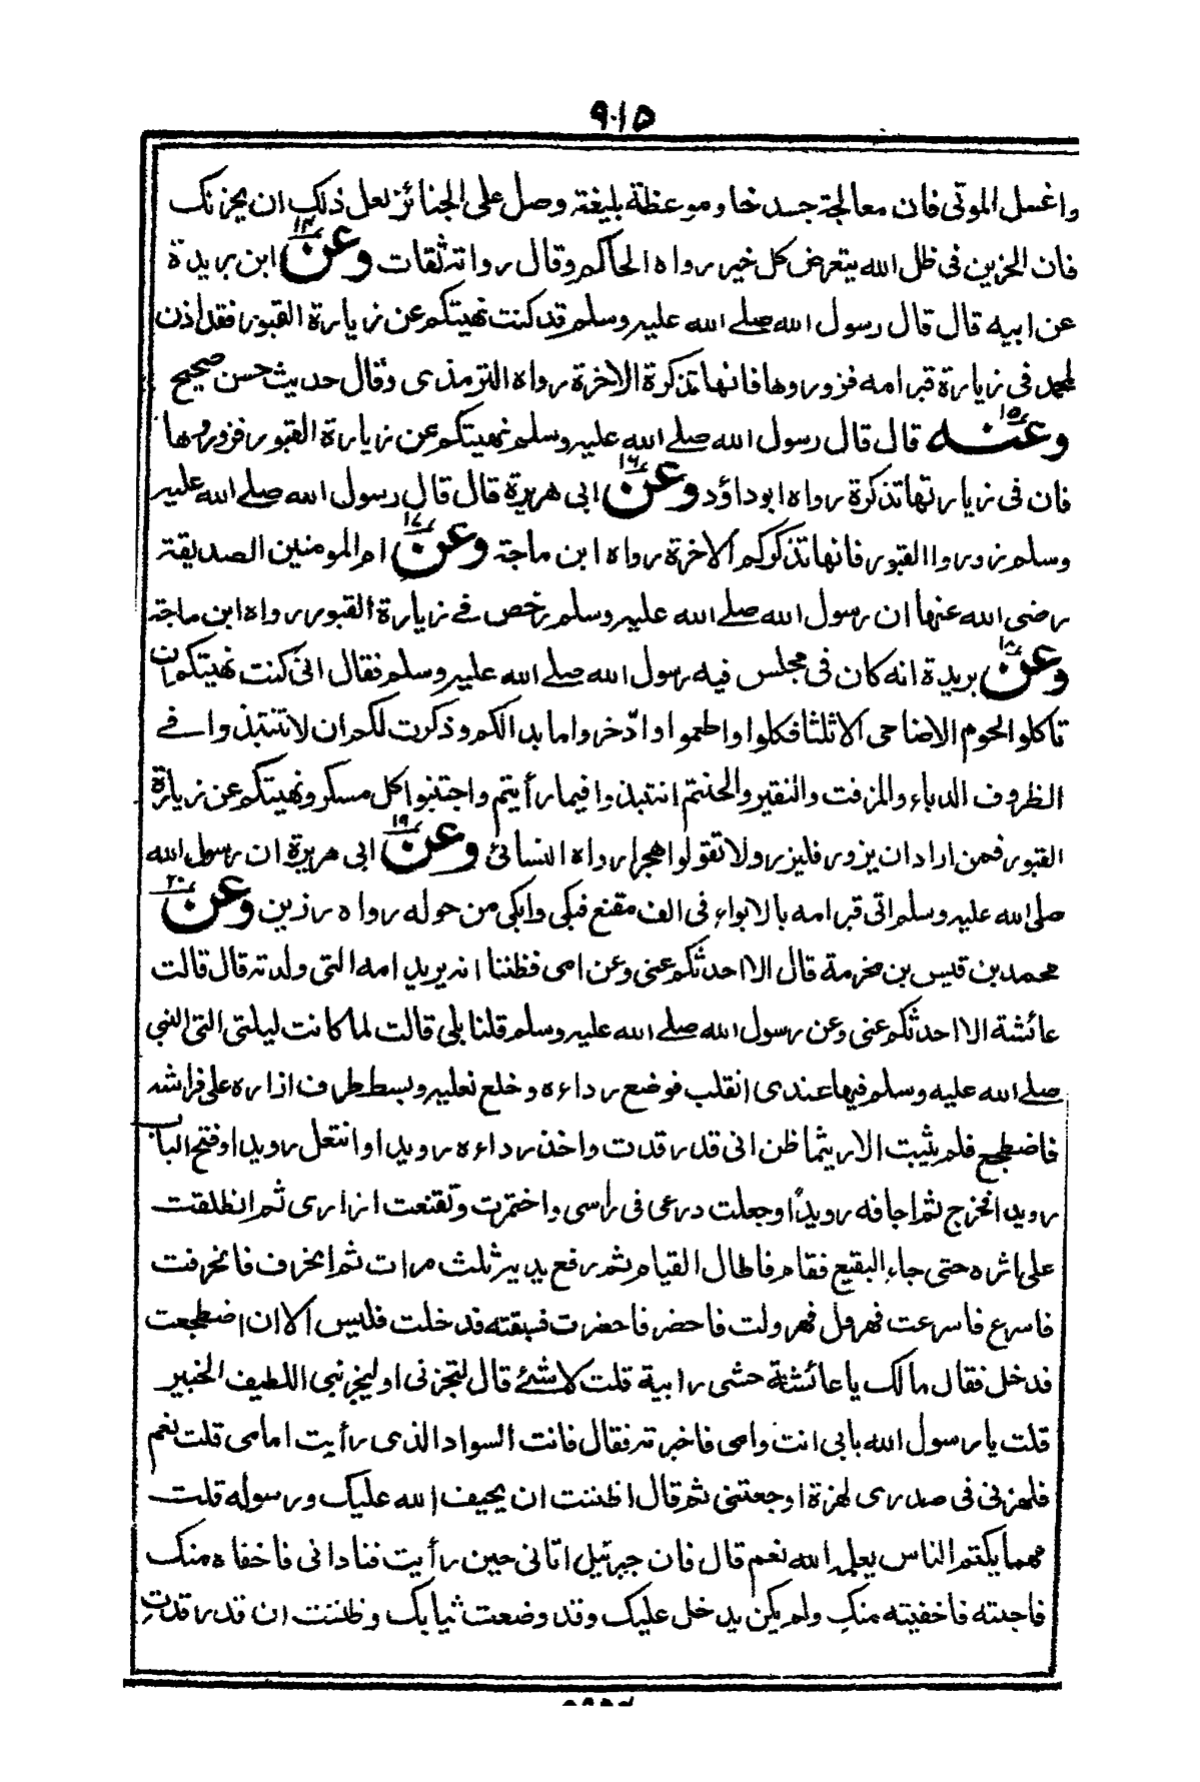 ٩٠١٥
واغسل الموتى فان معالجة جسد خاو موعظة بليغة وصل على الجنائز لعل ذلك ان يحزنك
فان الحزين فى ظل الله يتعرض كل خير رواه الحاكم وقال رواته ثقات وعن١٤ ابن بريدة
عن ابيه قال قال رسول الله صلے الله عليه وسلم قد كنت نهيتكم عن زيارة القبور فقد اذن
لمحمد فى زيارة قبر امه فزوروها فانها تذكرة الاخرة رواه الترمذى وقال حديث حسن صحيح
وعنه١٥ قال قال رسول الله صلے الله عليه وسلم نهيتكم عن زيارة القبور فزوروها
فان فى زيارتها تذكرة رواه ابوداؤد وعن١٦ ابى هريرة قال قال رسول الله صلے الله عليه
وسلم زوروا القبور فانها تذكركم الاخرة رواه ابن ماجة وعن١٧ ام المومنين الصديقة
رضى الله عنها ان رسول الله صلے الله عليه وسلم رخص فے زيارة القبور رواه ابن ماجة
وعن١٨ بريدة انه كان فى مجلس فيه رسول الله صلے الله عليه وسلم فقال انى كنت نهيتكم ان
تاكلوا لحوم الاضاحى الا ثلثا فكلوا واطعموا وادّخروا ما بدا لكم وذكرت لكم ان لا تنتبذوا فے
الظروف الدباء والمزفت والنقير والحنتم انتبذوا فيما رأيتم واجتنبوا كل مسكر ونهيتكم عن زيارة
القبور فمن اراد ان يزور فليزر ولا تقولوا هجرا رواه النسائى وعن١٩ ابى هريرة ان رسول الله
صلى الله عليه وسلم اتى قبر امه بالابواء فى الف مقنع فبكى وابكى من حوله رواه رزين وعن٢٠
محمد بن قيس بن مخرمة قال الا احدثكم عنى وعن امى فظننا انه يريد امه التى ولدته قال قالت
عائشة الا احدثكم عنى وعن رسول الله صلے الله عليه وسلم قلنا بلى قالت لما كانت ليلتى التى النبى
صلے الله عليه وسلم فيها عندى انقلب فوضع رداءه وخلع نعليه وبسط طرف ازاره على فراشه
فاضطجع فلم يثبت الا ريثما ظن انى قد رقدت واخذ رداءه رويدا وانتعل رويدا وفتح الباب
رويدا فخرج ثم اجافه رويدًا وجعلت درعى فى رأسى واختمرت وتقنعت ازارى ثم انطلقت
على اثره حتى جاء البقيع فقام فاطال القيام ثم رفع يديه ثلث مرات ثم انحرف فانحرفت
فاسرع فاسرعت فهرول فهرولت فاحضر فاحضرت فسبقته فدخلت فليس الا ان اضطجعت
فدخل فقال مالك يا عائشة حشى رابية قلت لا شئے قال لتخبرنى او ليخبرنى اللطيف الخبير
قلت يا رسول الله بابى انت وامى فاخبرته فقال فانت السواد الذى رأيت امامى قلت نعم
فلهزنى فى صدرى لهزة اوجعتنى ثم قال اظننت ان يحيف الله عليك ورسوله قلت
مهما يكتم الناس يعلمه الله نعم قال فان جبرئيل اتانى حين رأيت فنادانى فاخفاه منك
فاجبته فاخفيته منك ولم يكن يدخل عليك وقد وضعت ثيابك وظننت ان قد رقدت